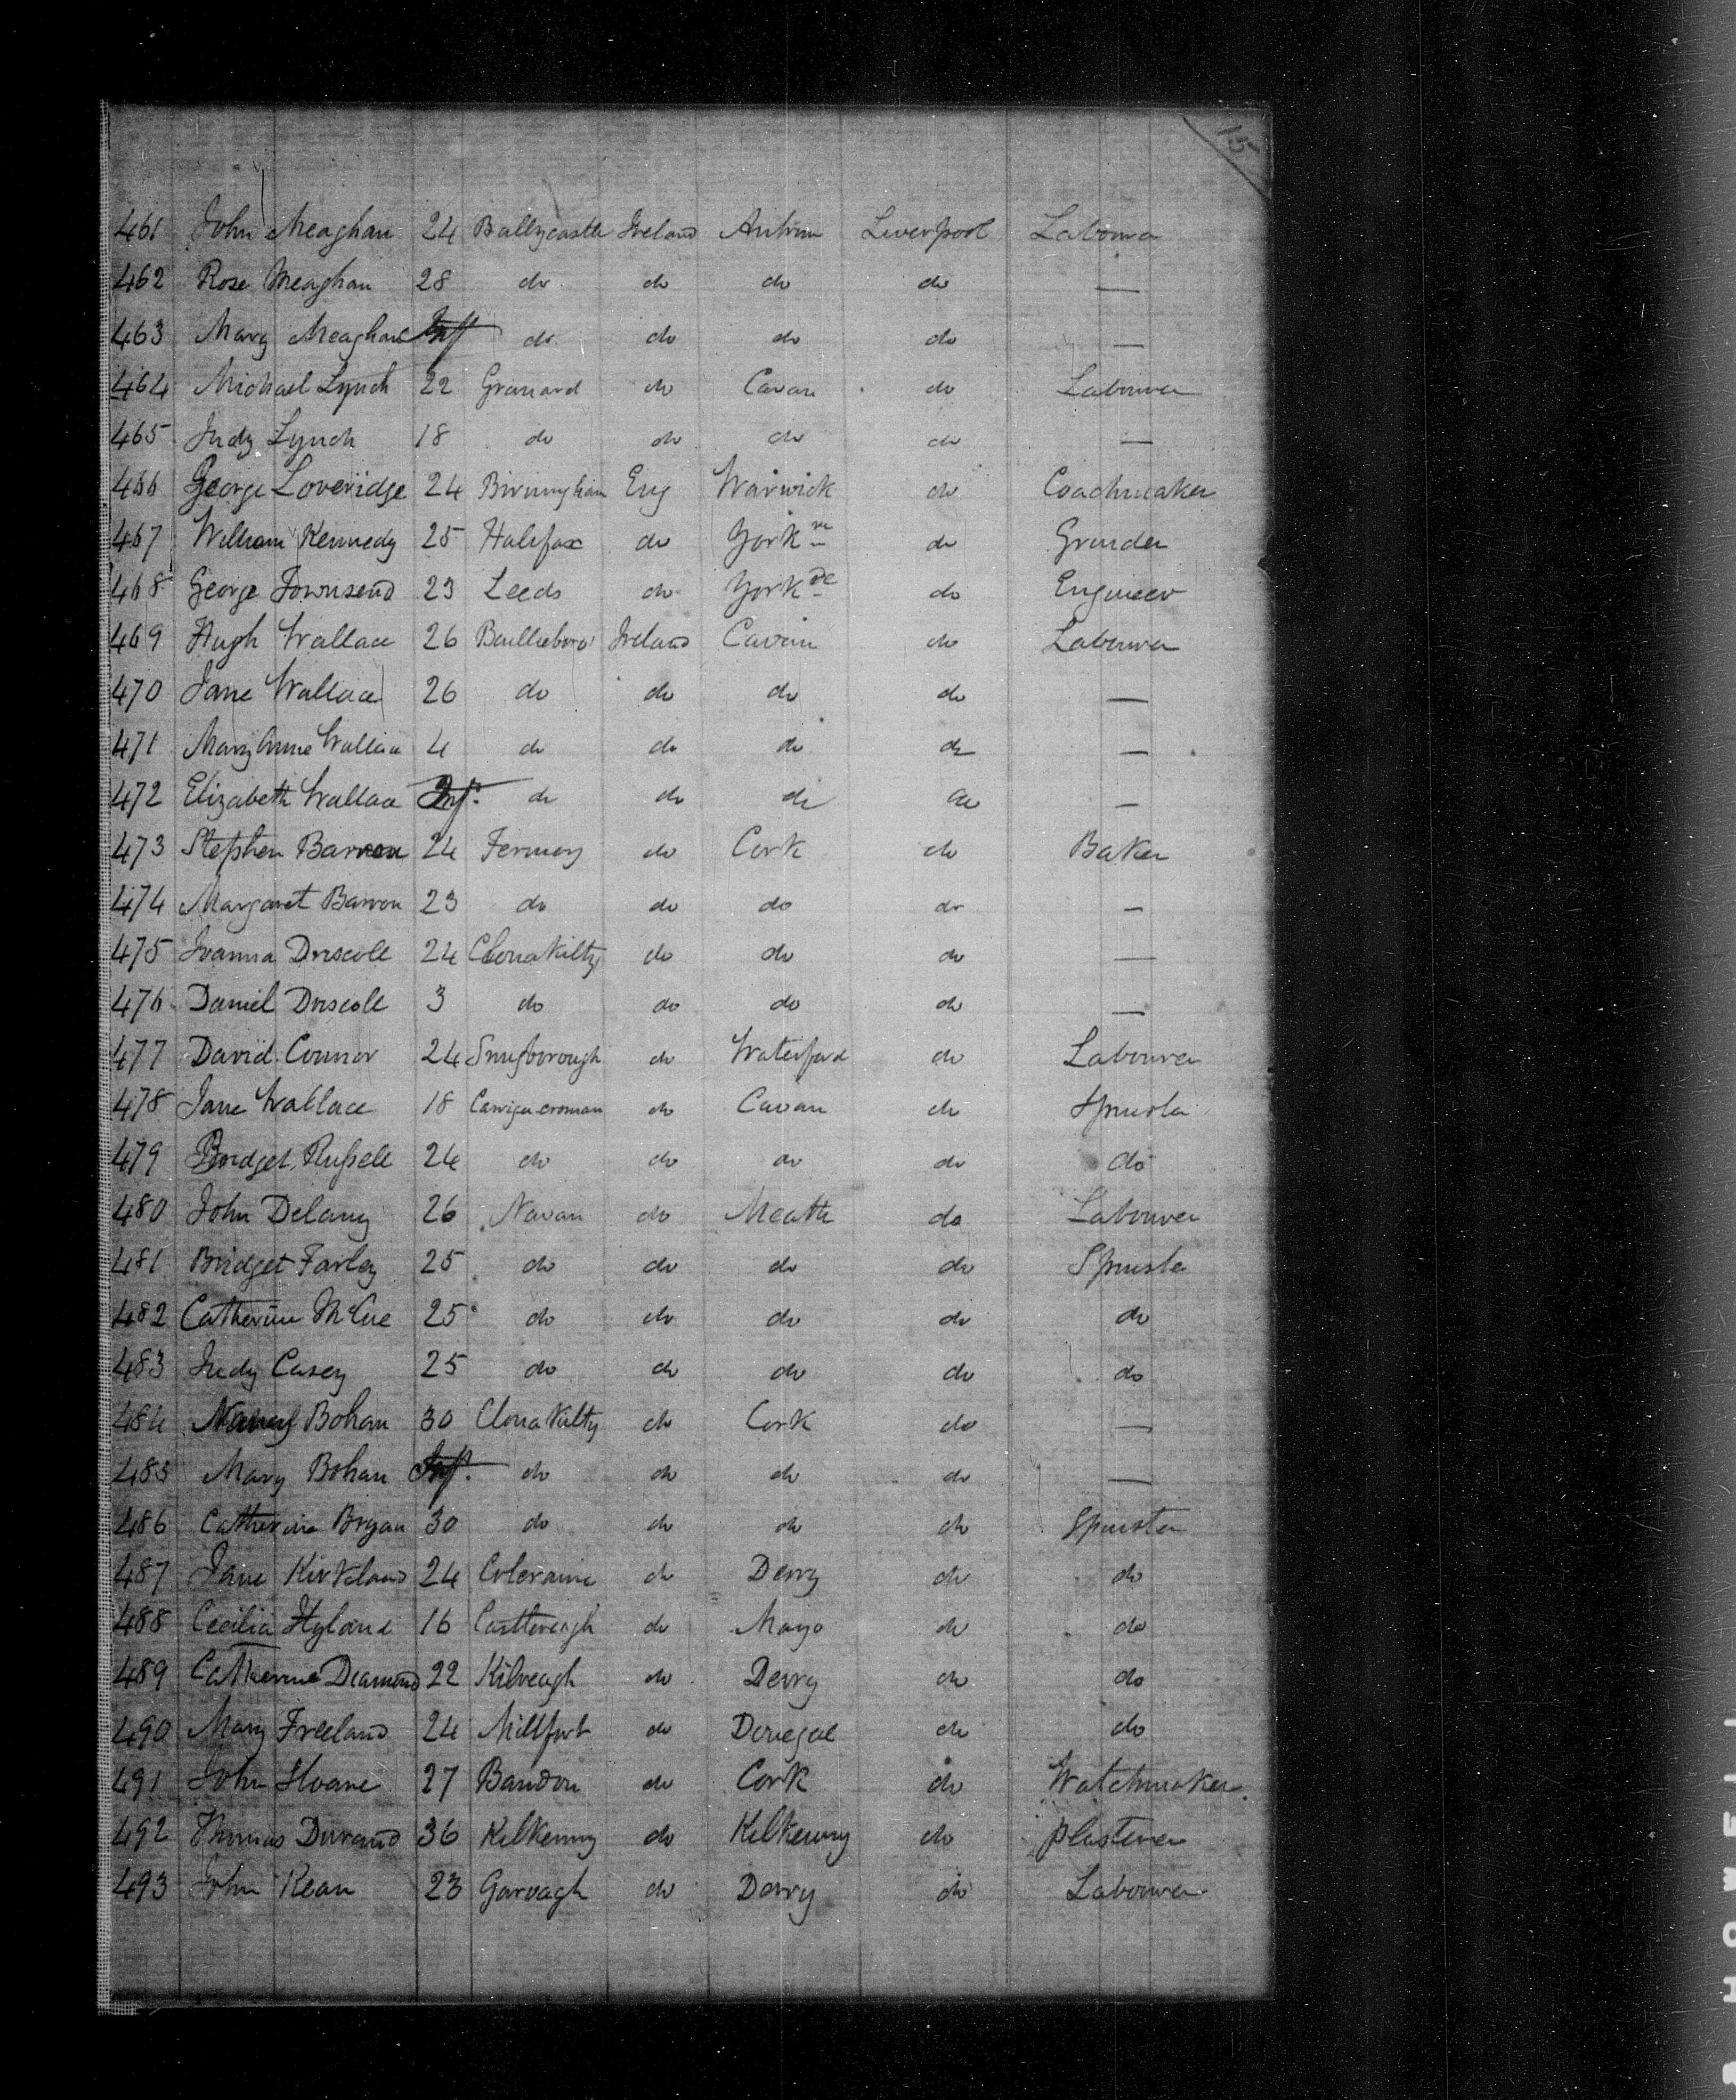 15
461 John Meaghan 24 Ballycastle Ireland Antrim Liverpool Labourer
462 Rose Meaghan 28 do do do do —
463 Mary Meaghan Inft do do do do —
464 Michael Lynch 22 Granard do Cavan do Labourer
465 Judy Lynch 18 do do do do —
466 George Loveridge 24 Birmingham Eng Warwick do Coachmaker
467 William Kennedy 25 Halifax do York do Grinder
468 George Townsend 23 Leeds do York do Engineer
469 Hugh Wallace 26 Bailieboro' Ireland Cavan do Labourer
470 Jane Wallace 26 do do do do —
471 Mary Anne Wallace 4 do do do do —
472 Elizabeth Wallace Inft do do do do —
473 Stephen Barron 24 Fermoy do Cork do Baker
474 Margaret Barron 23 do do do do —
475 Joanna Driscoll 24 Clonakilty do do do —
476 Daniel Driscoll 3 do do do do —
477 David Connor 24 Snugborough do Waterford do Labourer
478 Jane Wallace 18 do Cavan do Spinster
479 Bridget Russell 24 do do do do do
480 John Delany 26 Navan do Meath do Labourer
481 Bridget Farley 25 do do do do Spinster
482 Catherine McCue 25 do do do do do
483 Judy Casey 25 do do do do do
484 Nancy Bohan 30 Clonakilty do Cork do —
485 Mary Bohan Inft do do do do —
486 Catherine Bryan 30 do do do do Spinster
487 Jane Kirkland 24 Coleraine do Derry do do
488 Cecilia Hyland 16 Castlereagh do Mayo do do
489 Catherine Diamond 22 Kilreagh do Derry do do
490 Mary Freeland 24 Millfort do Donegal do do
491 John Sloane 27 Bandon do Cork do Watchmaker
492 Thomas Durand 36 Kilkenny do Kilkenny do Plasterer
493 John Kean 23 Garvagh do Derry do Labourer